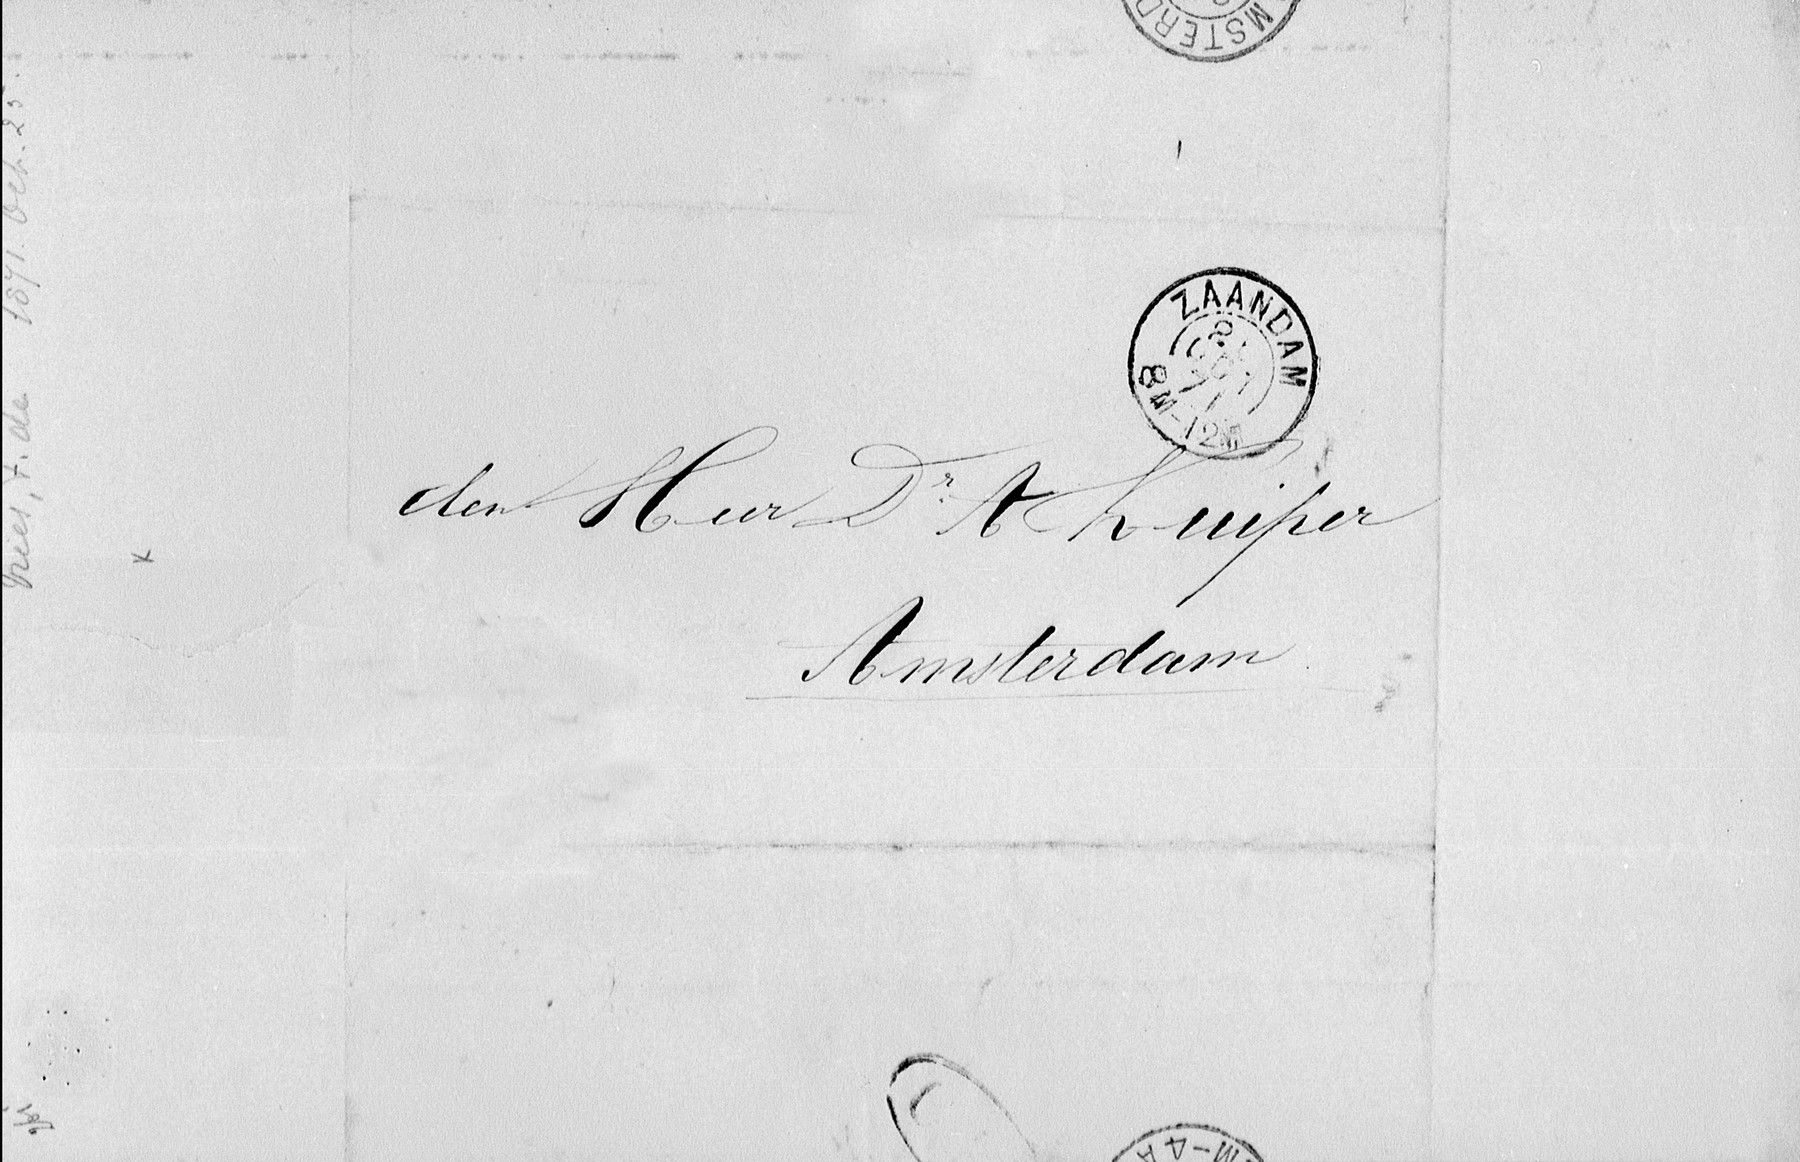 AMSTERD
ZAANDAM
8M-12M
71
den Heer Dr A Kuiper
Amsterdam
Vries, F. de 1871. Oct. 25.
M-4A